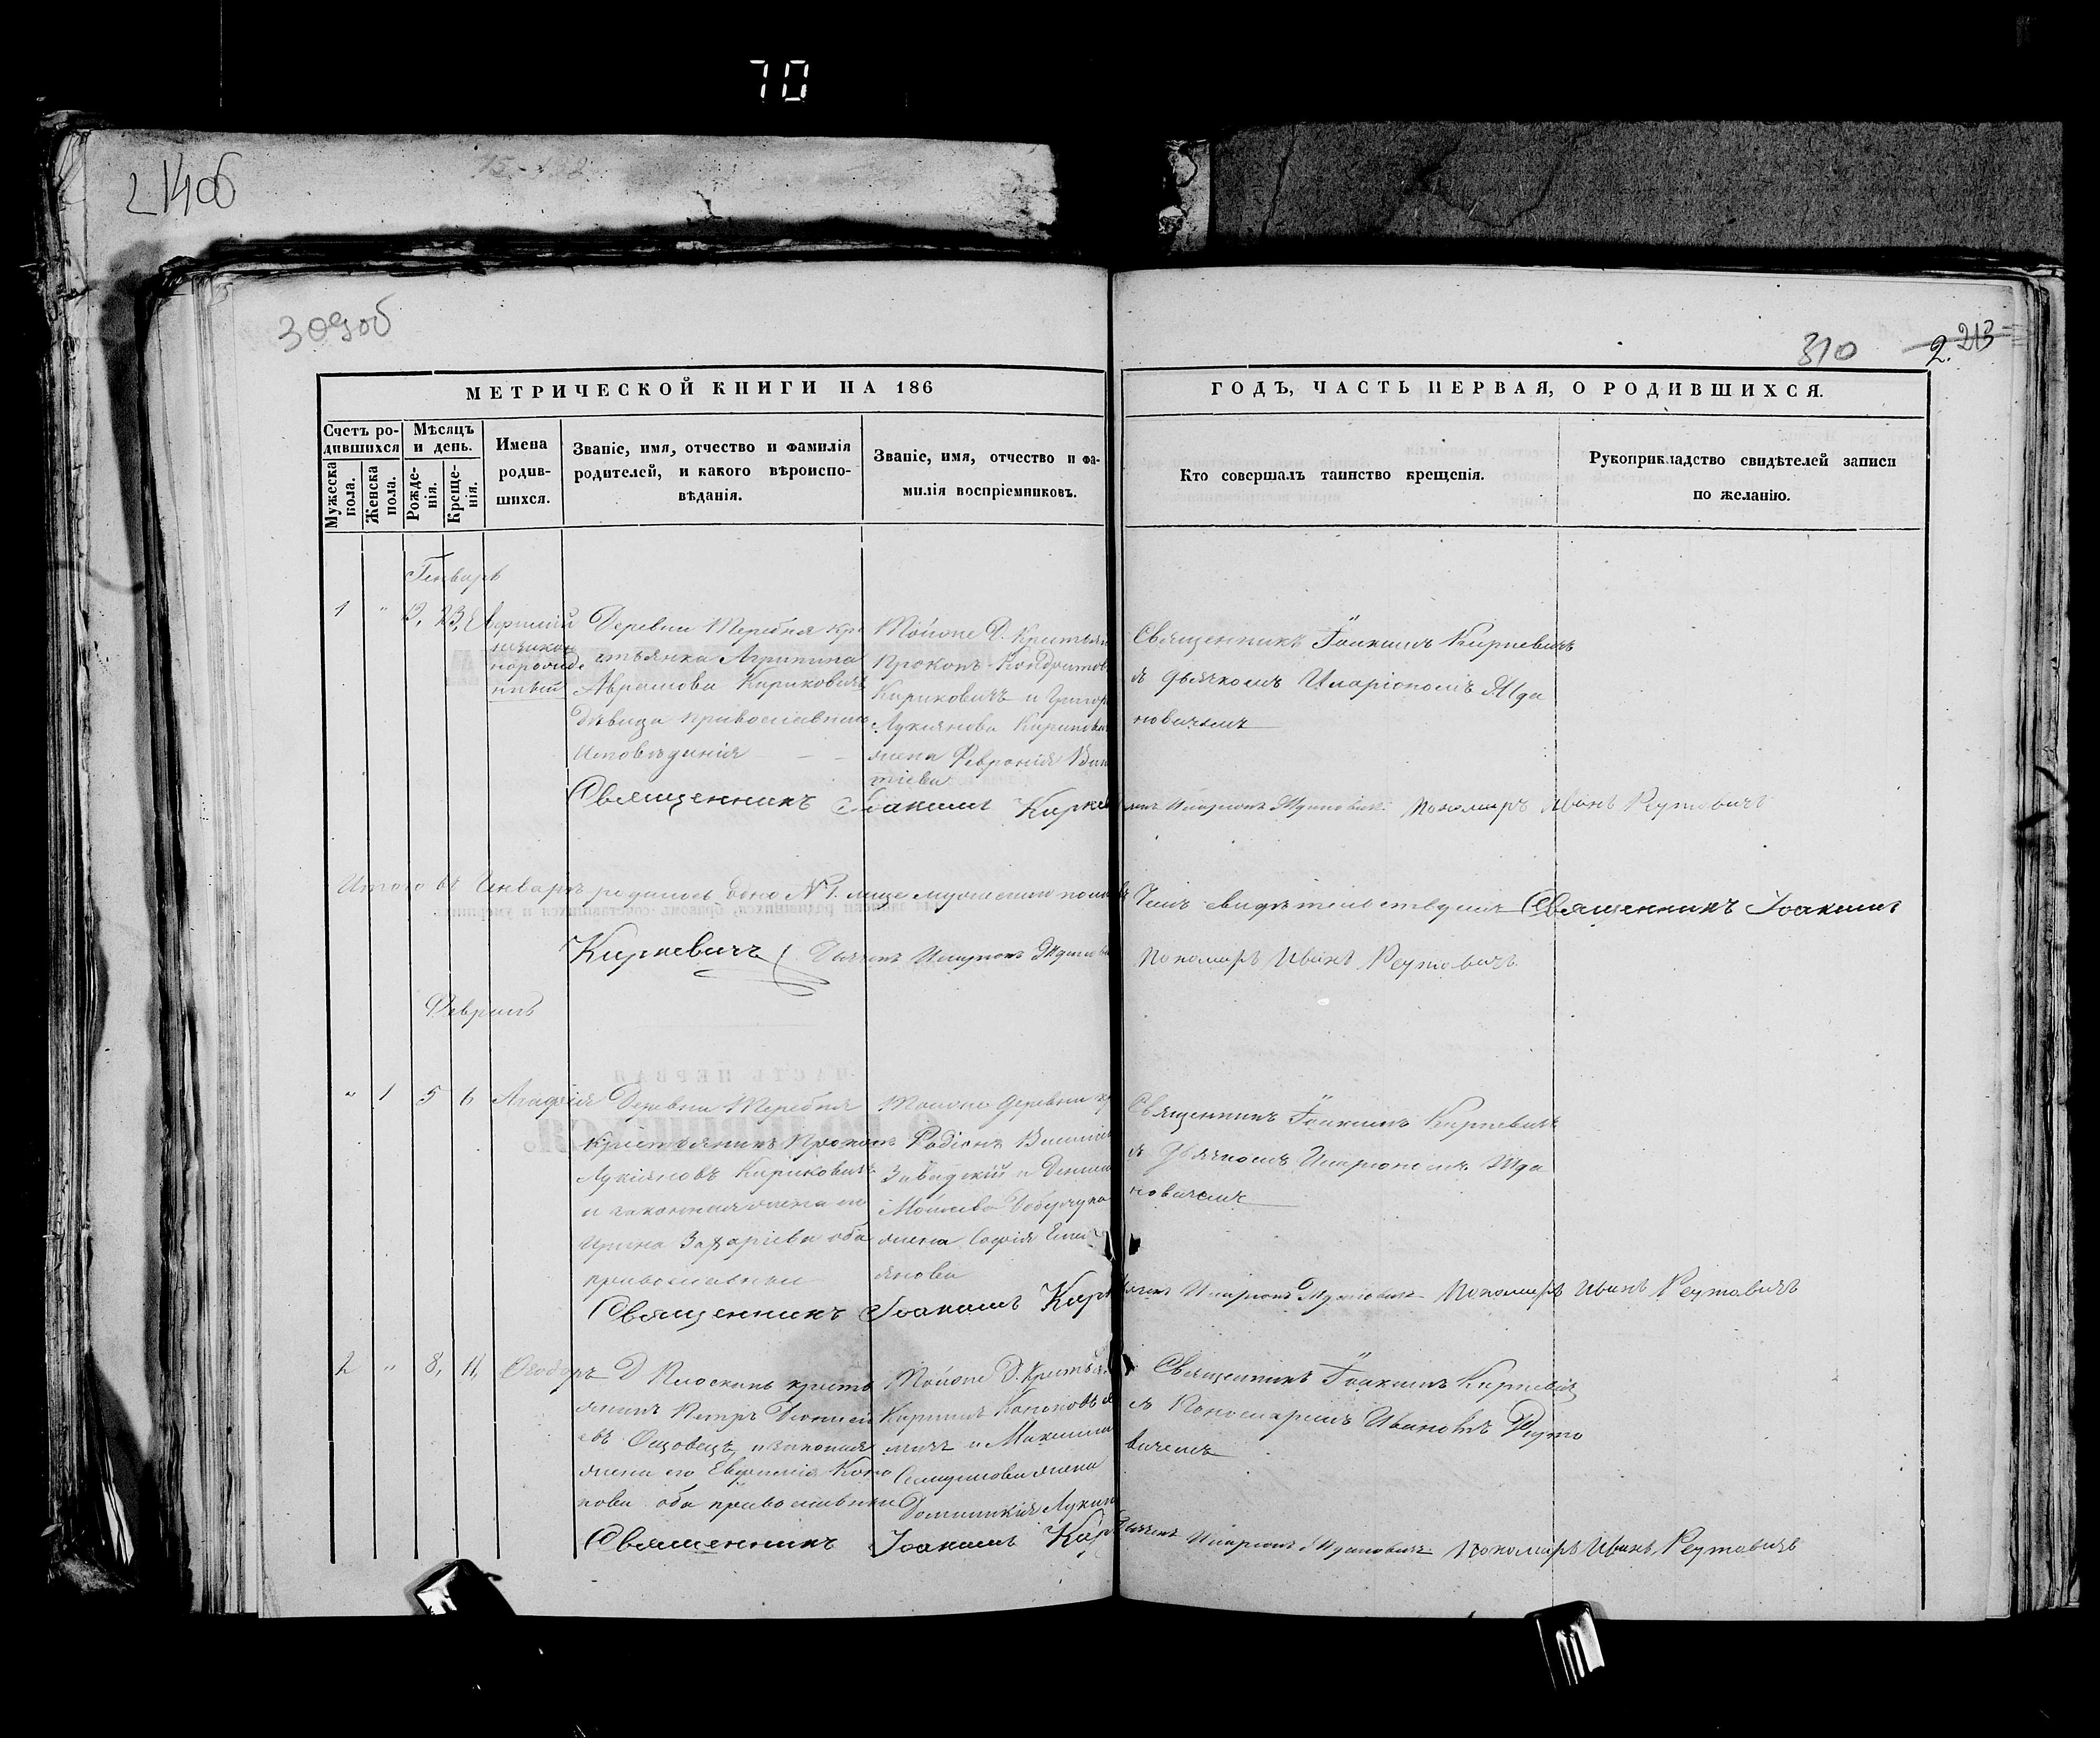 70
214об
309об
310
2.213
МЕТРИЧЕСКОЙ КНИГИ НА 186
ГОДЪ, ЧАСТЬ ПЕРВАЯ, О РОДИВШИХСЯ.
Счетъ родившихся
Мужеска пола.
Женска пола.
Мѣсяцъ и день.
Рожденія.
Крещенія.
Имена родившихся.
Званіе, имя, отчество и фамилія
родителей, и какого вѣроисповѣданія.
Званіе, имя, отчество и фамилія воспріемниковъ.
Кто совершалъ таинство крещенія.
Рукоприкладство свидѣтелей записи
по желанію.
Генварь
1 " 23, Евфимій
Деревни Теребня кре
стьянка Агрипина
Аврамова Кириковичъ
дѣвица православнаго
исповѣданія
Тойоже Д. Крестьян
Прокопъ Кондратов
Кириковичъ и Григор
Лукіянова Кирикович
жена Февронія
Священникъ Іоакимъ Киркевичъ
съ дьячкомъ Иларіономъ Жда
новичемъ
Священникъ Іоакимъ Кирке
Пономарь Иванъ Реутовичъ
Итого въ Генварѣ родилось № 1. лице мужескаго пола
Чемъ свидѣтельствуемъ Священникъ Іоакимъ
Киркевичъ Дьячекъ Иларіонъ
Пономарь Иванъ Реутовичъ
Февраль
" 1 5 6 Агафія
Деревни Теребня
крестьянинъ Прокопъ
Лукіяновъ Кириковичъ
и законная жена его
Ирина Захаріева оба
православные
Тойоже деревни кр
Родіонъ
Завадскій и
жена Софія Емел
янова
Священникъ Іоакимъ Киркевичъ
съ Дьячкомъ Иларіономъ Жда
новичемъ
Священникъ Іоакимъ Кирк
Пономарь Иванъ Реутовичъ
2 " 8, 11, Ѳеодоръ
Д Плоскинь кресть
янинъ Петръ Діонисі
евъ и законная
жена его Евфимія Коно
нова оба православные
Тойоже Д. Крестья
Кириллъ Кононовъ
и Максима
жена
Домникія Лукин
Священникъ Іоакимъ Киркевичъ
съ Пономаремъ Иваномъ Реуто
вичемъ
Священникъ Іоакимъ Кирк
Дьячекъ Иларіонъ Пономарь Иванъ Реутовичъ